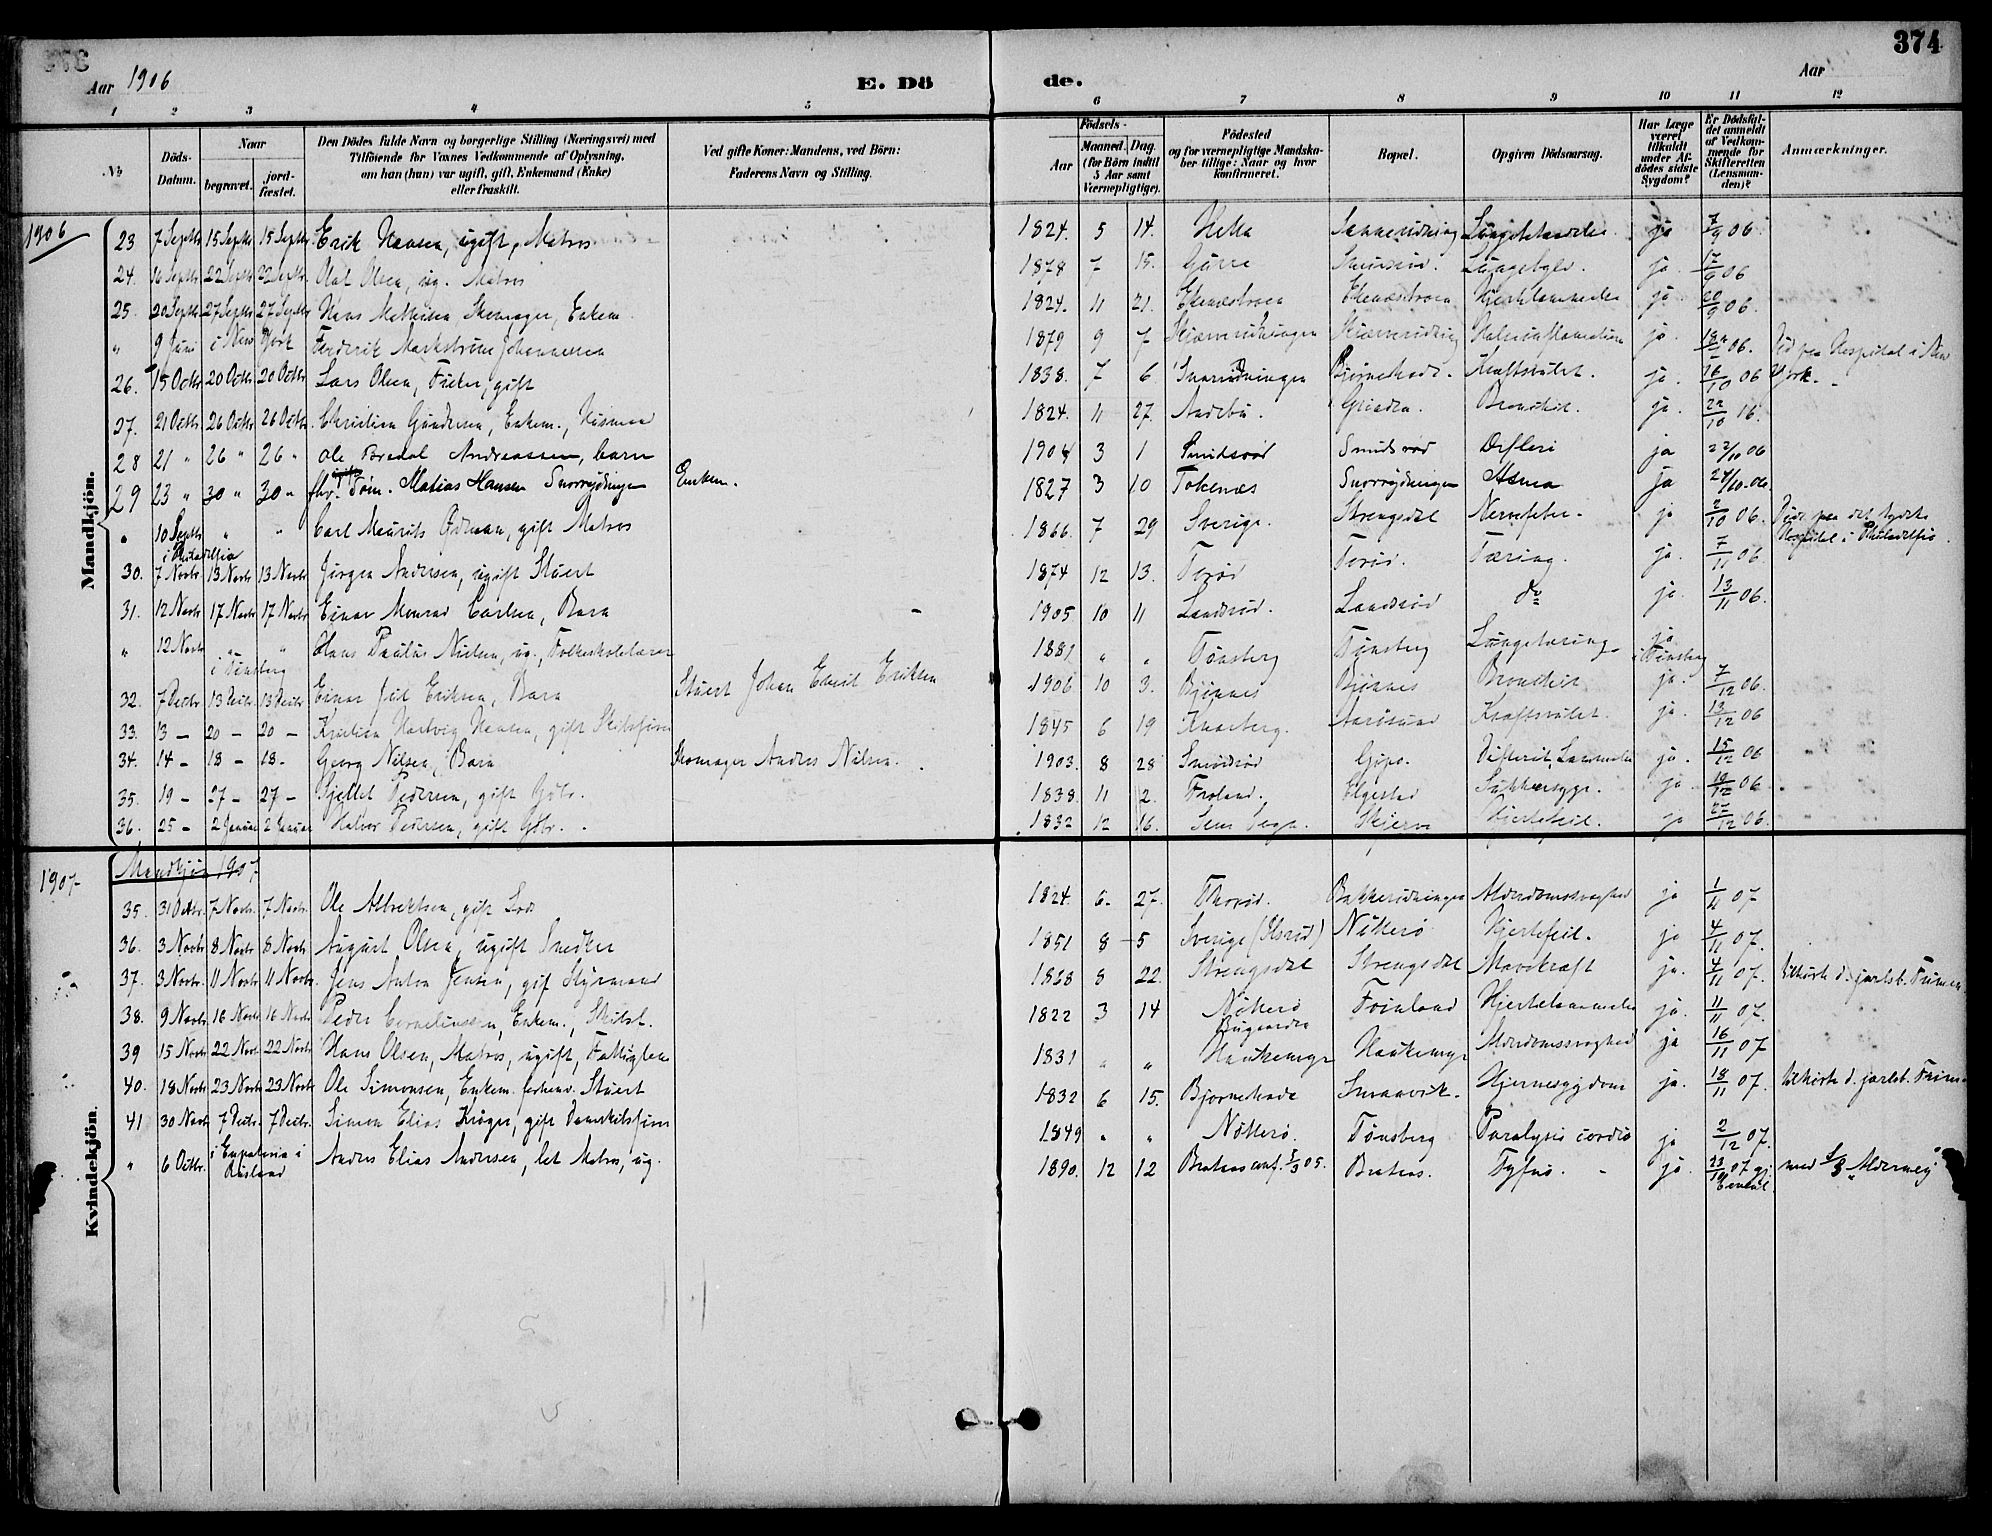 374
Aar 1906 E. Dö de. Aar
1 2 3 4 5 6 7 8 9 10 11 12
№ Döds-Datum. Naar begravet. jord-fæstet. Den Dödes fulde Navn og borgerlige Stilling (Næringsvei) med Tilföiende for Voxnes Vedkommende af Oplysning, om han (hun) var ugift, gift, Enkemand (Enke) eller fraskilt. Ved gifte Koner: Mandens, ved Börn: Faderens Navn og Stilling. Födsels- Aar Maaned. Dag. (for Börn indtil 5 Aar samt Værnepligtige). Födested og for værnepligtige Mandska-ber tillige: Naar og hvor konfirmeret. Bopæl. Opgiven Dödsaarsag. Har Læge været tilkaldt under Af-dödes sidste Sygdom? Er Dödsfal-det anmeldt af Vedkom-mende for Skifteretten (Lensman-den)? Anmærkninger.
1906
Mandkjön.
23 7 Septbr 15 Septbr 15 Septbr Erik Hansen, ugift, Matros 1824. 5 14. ja 7/9 06.
24. 16 Septbr 22 Septbr 22 Septbr Olaf Olsen, ug. Matros 1878 7 15. ja. 17/9 06
25. 20 Septbr 27 Septbr 27 Septbr Hans Mathisen, Skomager, Enkem. 1824. 11 21. Ekenæstraen Ekenæstraen ja 20/9 06.
" 9 Juni i New York Frederik Markstrum Johannessen 1879 9 7 ja. 06. Død paa Hospital i New York.
26. 15 Octbr 20 Octbr 20 Octbr Lars Olsen, gift 1838. 7 6 Kraftsvulst. ja. 16/10 06
27. 21 Octbr 26 Octbr 26 Octbr Christian Gundersen, Enkem., Husmand 1824. 11 27. Andebu. Bronchit. ja. 22/10
28 21 " 26 " 26 " Ole Bredal Andreassen, barn 1904 3 1 Smidsrød Smidsrød Difteri ja 06
29 23 " 30 " 30 " Matias Hansen Snorrydningen Enkem. 1827 3 10 Tokenæs Snorrydningen Asma ja 24/10.06.
" 10 Septbr i Philadelfia " " Carl Maurits Ødman, gift Matros 1866. 7 29 Sverige. Strengsdal Nervefeber. ja 2/10 06. Døde paa det tydske Hospital i Philadelfia.
30. 7 Novbr 13 Novbr 13 Novbr Jørgen Andersen, ugift Stuert 1874 12 13. Torød Torød. Tæring. ja. 7/11 06.
31. 12 Novbr 17 Novbr 17 Novbr Einar Monrad Carlsen, Barn 1905 10 11 Landsrød. Landsrød do ja. 13/11 06.
" 12 Novbr i Tønsberg " " Hans Paulus Nielsen, ug., Folkeskolelærer 1881 " " Tønsberg Tønsberg Lungetæring ja i Tønsberg
32. 7 Decbr 13 Decbr. 13 Decbr Einar Juel Eriksen, Barn Stuert Johan Emil Eriksen 1906 10 3. Bjønnes Bjønnes Bronchit ja. 7/12 06.
33. 13 — 20 — 20 — Kristian Hartvig Hansen, gift Skibsfører 1845 6 19 Knarberg. Aarøsund Kraftsvulst. ja. 13/12 06
34. 14 — 18 — 18 — Georg Nilsen, Barn Skomager Anders Nilsen. 1903. 8 28 Smidsrød Gipø. Difterit, ja. 15/12 06
35. 19 — 27 — 27 — Kjellet Pedersen, gift Gbr. 1838. 11 2. Froland. Elgestad Sukkersyge. ja 19/12 06
36. 25 — 2 Januar 2 Januar Halvor Pedersen, gift Gbr. 1832 12 16. Sem Sogn. Skjerve Hjertefeil. ja 27/12 06.
1907. Mandkjøn 1907
Kvindekjön.
35. 31 Octbr. 7 Novbr. 7 Novbr. Ole Albrektsen, gift Lods 1824. 6. 27. Thorød. Bakkerødningen Alderdomssvaghed ja 1/11 07
36. 3 Novbr 8 Novbr 8 Novbr August Olsen, ugift Snedker 1851 8 5 Sverige Nøtterø Hjertefeil. ja 4/11 07.
37. 3 Novbr. 11 Novbr 11 Novbr. Jens Anton Jensen, gift Styrmand 1868 8 22. Strengsdal Strengsdal Mavekræft ja. 4/11 07. tilhørte d. jarlsb. Frimen.
38. 9 Novbr 16 Novbr 16 Novbr Peder Corneliussen, Enkem., Skibst. 1822 3 14 Nøtterø Bugaarden Føinland Hjertelammelse ja. 11/11 07.
39 15 Novbr 22 Novbr. 22 Novbr Hans Olsen, Matros, ugift, Fattiglem 1831 " " Haukemyr Haukemyr Alderdomssvaghed ja 16/11 07
40. 18 Novbr 23 Novbr 23 Novbr. Ole Simonsen, Enkem. forhenv. Stuert 1832 6 15. Bjørnehode Smaavik. Hjernesygdom ja. 18/11 07. tilhørte d. jarlsb. Frim.
41 30 Novbr 7 Decbr. 7 Decbr. Simon Elias Krøger, gift Dampskibsfører 1849 " " Nøtterø. Tønsberg Paralysis cordis ja 2/12 07.
" 6 Octbr. i Eupatoria i Rusland Anders Elias Andersen, let Matros, ug. 1890. 12 12 Brataas conf. 05. Brataas. Tyfus. ja. 07 med Alderney